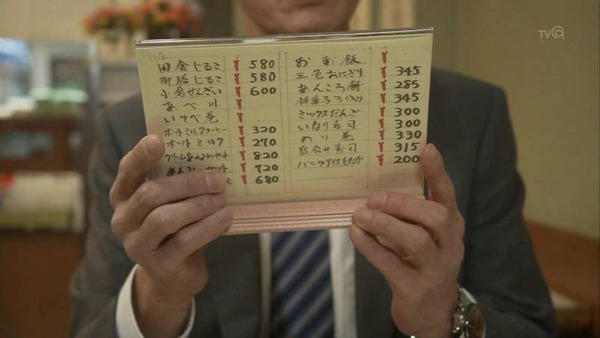 田舎じるこ ¥580
御膳じるこ ¥580
小倉ぜんざい ¥600
あべ川 ¥
いそべ巻 ¥
ホットミルクコーヒー ¥320
ホットミルク ¥270
クリームあんみつセット ¥820
¥720
680
お赤飯 ¥
三色おにぎり ¥345
あんころ餅 ¥285
¥345
ミックスだんご ¥300
いなり寿司 ¥300
のり巻 ¥330
盛合せ寿司 ¥315
バニラアイスもなか ¥200
TVQ